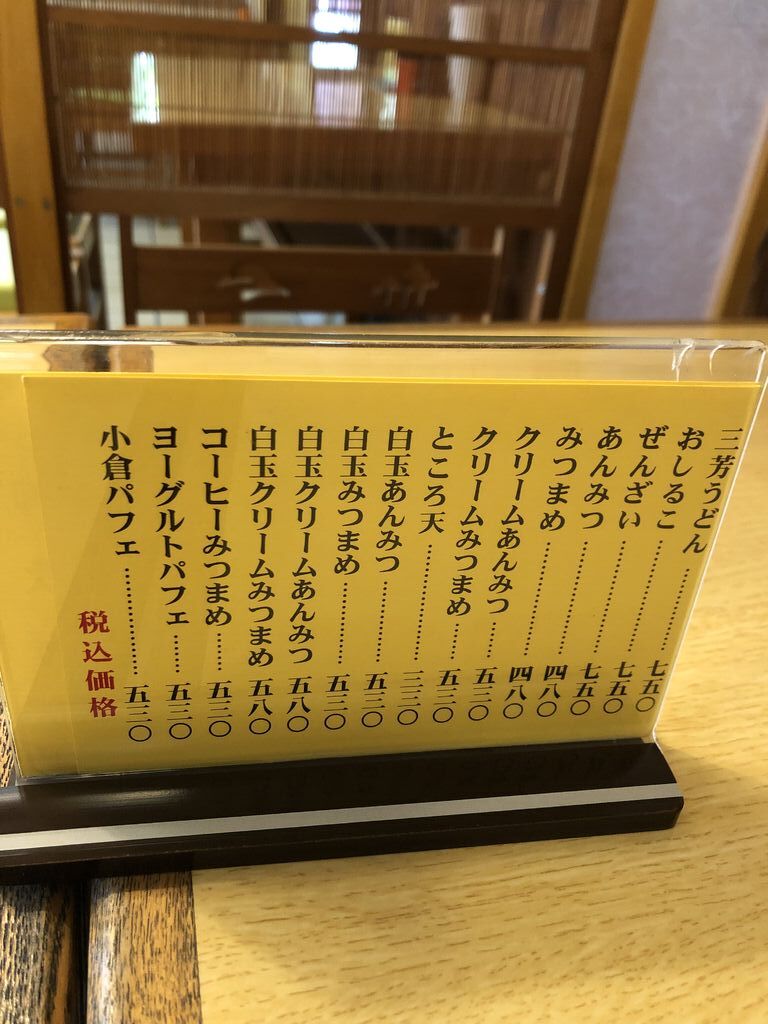 三芳うどん…………七五〇
おしるこ…………七五〇
ぜんざい…………七五〇
あんみつ…………四八〇
みつまめ…………四八〇
クリームあんみつ……五三〇
クリームみつまめ…五三〇
ところ天…………三三〇
白玉あんみつ………五三〇
白玉みつまめ………五三〇
白玉クリームあんみつ 五八〇
白玉クリームみつまめ 五八〇
コーヒーみつまめ……五三〇
ヨーグルトパフェ……五三〇
小倉パフェ…………五三〇
税込価格